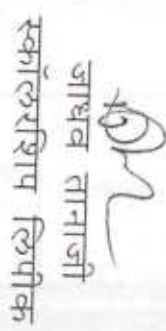 जाधव तानाजी
स्कॉलरशिप लिपीक